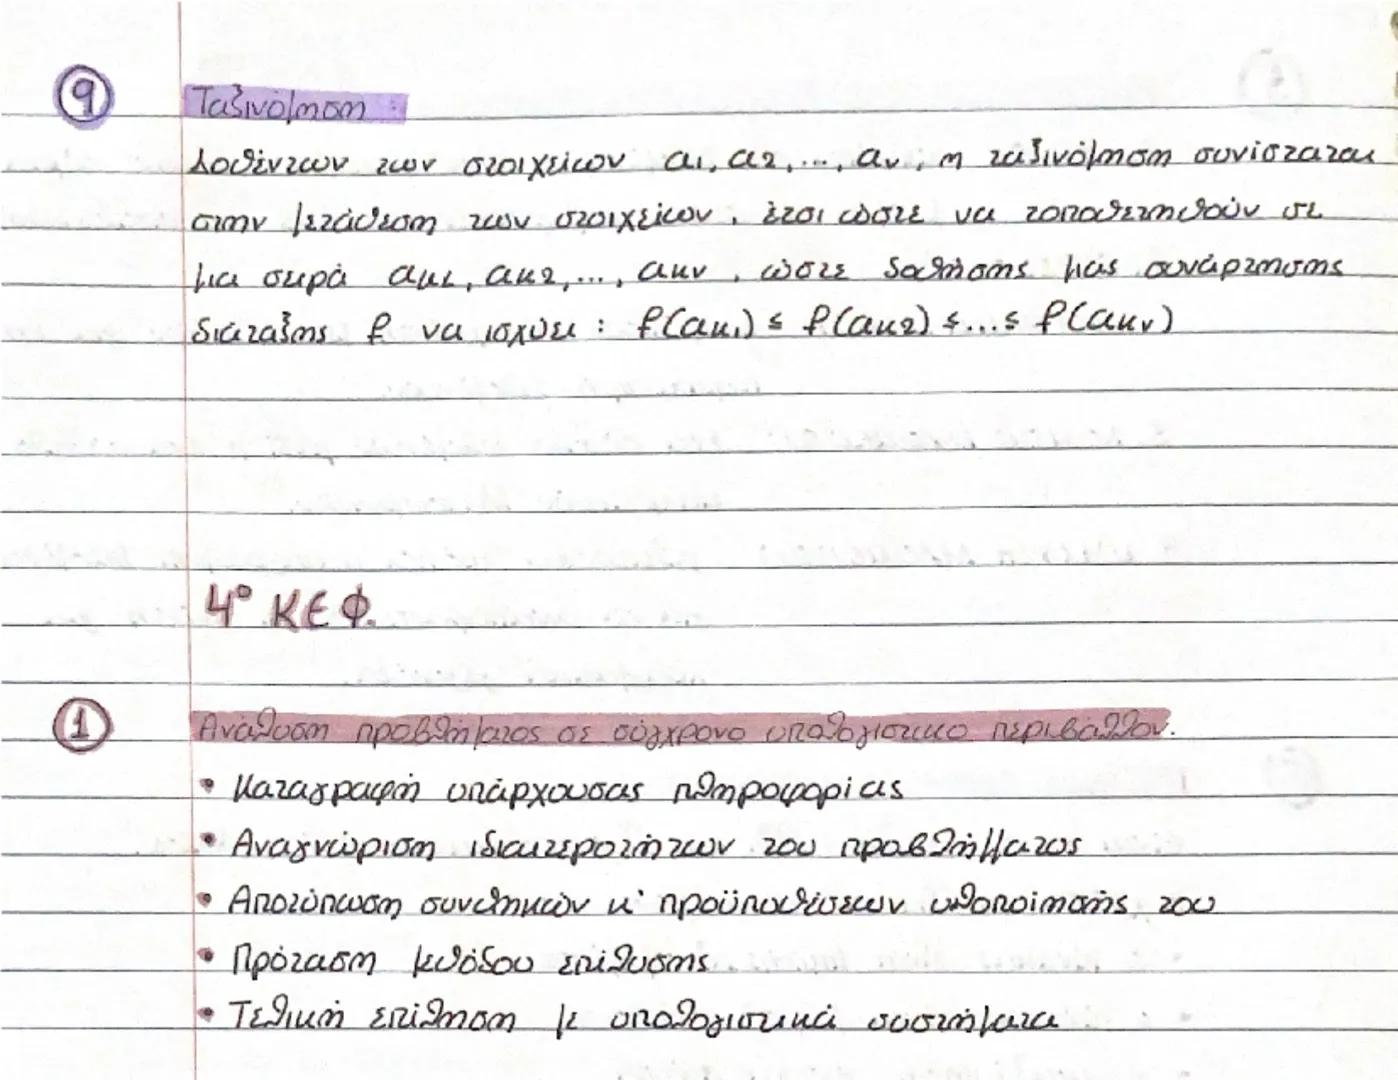 9 Ταξινόμηση :
Δοθέντων των στοιχείων α1, α2, ..., αν, η ταξινόμηση συνίσταται
στην μετάθεση των στοιχείων, έτσι ώστε να τοποθετηθούν σε
μια σειρά ακ1, ακ2, ..., ακν, ώστε δοθήσης μιας συνάρτησης
διάταξης f να ισχύει : f(ακ1) ≤ f(ακ2) ≤...≤ f(ακν)
4° ΚΕΦ.
1 Ανάλυση προβλήματος σε σύγχρονο υπολογιστικό περιβάλλον.
• Καταγραφή υπάρχουσας πληροφορίας
• Αναγνώριση ιδιαιτεροτήτων του προβλήματος
• Αποτύπωση συνθηκών κ' προϋποθέσεων υλοποίησής του
• Πρόταση μεθόδου επίλυσης
• Τελική επίλυση με υπολογιστικά συστήματα